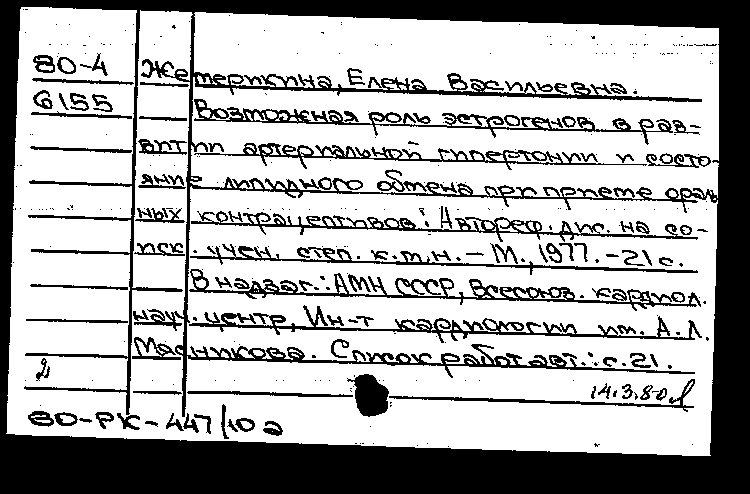 80-4 Жетерикина, Елена Васильевна.
6155 Возможная роль эстрогенов в раз-
витии артериальной гипертонии и состо-
яние липидного обмена при приеме ораль
ных контрацептивов: Автореф. дис. на со-
иск. учен. степ. к.м.н. – М., 1977. – 21 с.
В надзаг.: АМН СССР, Всесоюз. кардиол.
науч. центр, Ин-т кардиологии им. А.Л.
Мясникова. Список работ авт.: с. 21.
2 14.3.80
80-РК-447/10а